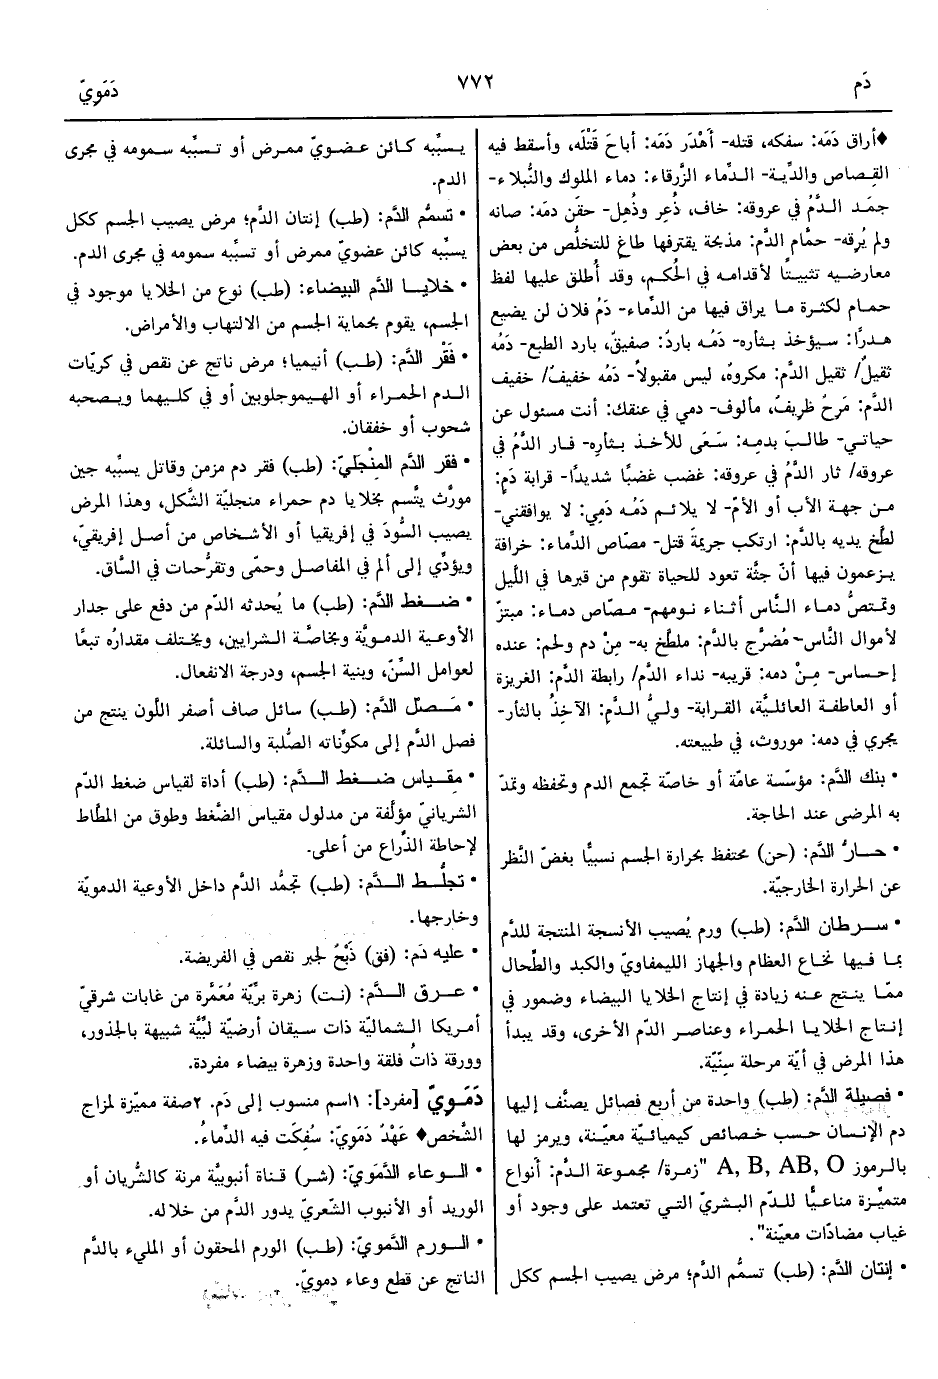 دَم
٧٧٢
دَمَويّ
♦أراق دَمَه: سفكه، قتله- أَهْدَر دَمَه: أباحَ قَتْلَه، وأسقط فيه
القِصاص والدِّية- الدِّماء الزَّرقاء: دماء الملوك والنُّبلاء-
جمَد الدَّمُ في عروقه: خاف، ذُعِر وذُهِل- حقَن دمَه: صانه
ولم يُرِقه- حمَّام الدَّم: مذبحة يقترفها طاغٍ للتخلُّص من بعض
معارضيه تثبيتًا لأقدامه في الحُكم، وقد أُطلق عليها لفظ
حمام لكثرة ما يراق فيها من الدِّماء- دَمُ فلان لن يضيع
هدرًا: سيؤخذ بثأره- دَمُه باردٌ: صفيق، بارد الطبع- دَمُه
ثقيلٌ/ ثقيل الدَّم: مكروهٌ، ليس مقبولاً- دَمُه خفيفٌ/ خفيف
الدَّم: مَرِحٌ ظريفٌ، مألوف- دمي في عنقك: أنت مسئول عن
حياتي- طالبَ بدمِه: سَعَى للأخذ بثأره- فار الدَّمُ في
عروقه/ ثار الدَّمُ في عروقه: غضب غضبًا شديدًا- قرابة دَم:
من جهة الأب أو الأمّ- لا يلائم دَمُه دَمِي: لا يوافقني-
لطَّخ يديه بالدَّم: ارتكب جريمةَ قتل- مصّاص الدِّماء: خرافة
يزعمون فيها أنّ جثَّة تعود للحياة تقوم من قبرها في اللَّيل
وتمتصُّ دماء النَّاس أثناء نومهم- مصّاص دماء: مبتزّ
لأموال النَّاس- مُضرَّج بالدَّم: ملطَّخ به- مِنْ دم ولحم: عنده
إحساس- مِنْ دمه: قريبه- نداء الدَّم/ رابطة الدَّم: الغريزة
أو العاطفة العائليَّة، القرابة- وليُّ الدَّم: الآخِذُ بالثأر-
يجري في دمه: موروث، في طبيعته.
• بنك الدَّم: مؤسّسة عامّة أو خاصّة تجمع الدم وتحفظه وتمدّ
به المرضى عند الحاجة.
• حارُّ الدَّم: (حن) محتفظ بحرارة الجسم نسبيًّا بغضّ النَّظر
عن الحرارة الخارجيّة.
• سرطان الدَّم: (طب) ورم يُصيب الأنسجة المنتجة للدَّم
بما فيها نخاع العظام والجهاز الليمفاويّ والكبد والطِّحال
ممّا ينتج عنه زيادة في إنتاج الخلايا البيضاء وضمور في
إنتاج الخلايا الحمراء وعناصر الدّم الأخرى، وقد يبدأ
هذا المرض في أيّة مرحلة سِنيّة.
• فصيلة الدَّم: (طب) واحدة من أربع فصائل يصنَّف إليها
دم الإنسان حسب خصائص كيميائيّة معيّنة، ويرمز لها
بالرموز A, B, AB, O "زمرة/ مجموعة الدَّم: أنواع
متميِّزة مناعيًّا للدّم البشريّ التي تعتمد على وجود أو
غياب مضادّات معيّنة".
• إنتان الدَّم: (طب) تسمُّم الدَّم؛ مرض يصيب الجسم ككل
يسبِّبه كائن عضويّ ممرض أو تسبِّبه سمومه في مجرى
الدم.
• تسمُّم الدَّم: (طب) إنتان الدَّم؛ مرض يصيب الجسم ككل
يسبِّبه كائن عضويّ ممرض أو تسبِّبه سمومه في مجرى الدم.
• خلايا الدَّم البيضاء: (طب) نوع من الخلايا موجود في
الجسم، يقوم بحماية الجسم من الالتهاب والأمراض.
• فَقْر الدَّم: (طب) أنيميا؛ مرض ناتج عن نقص في كريّات
الدم الحمراء أو الهيموجلوبين أو في كليهما ويصحبه
شحوب أو خفقان.
• فقر الدَّم المِنْجَليّ: (طب) فقر دم مزمن وقاتل يسبِّبه جين
مورَّث يتَّسم بخلايا دم حمراء منجليّة الشَّكل، وهذا المرض
يصيب السُّودَ في إفريقيا أو الأشخاص من أصل إفريقيّ،
ويؤدِّي إلى ألم في المفاصل وحمّى وتقرُّحات في السَّاق.
• ضغط الدَّم: (طب) ما يُحدثه الدّم من دفع على جدار
الأوعية الدمويَّة وبخاصَّة الشرايين، ويختلف مقدارُه تبعًا
لعوامل السِّنّ، وبنية الجسم، ودرجة الانفعال.
• مَصل الدَّم: (طب) سائل صاف أصفر اللَّون ينتج من
فصل الدَّم إلى مكوِّناته الصُّلبة والسائلة.
• مقياس ضغط الدَّم: (طب) أداة لقياس ضغط الدّم
الشريانيّ مؤلّفة من مدلول مقياس الضَّغط وطوق من المطّاط
لإحاطة الذِّراع من أعلى.
• تجلُّط الدَّم: (طب) تجمُّد الدَّم داخل الأوعية الدمويّة
وخارجها.
• عليه دَم: (فق) ذَبْحٌ لجبر نقص في الفريضة.
• عرق الدَّم: (نت) زهرة برِّيَّة مُعَمَّرة من غابات شرقيّ
أمريكا الشماليّة ذات سيقان أرضيّة لبِّيَّة شبيهة بالجذور،
وورقة ذاتُ فلقة واحدة وزهرة بيضاء مفردة.
دَمَويّ [مفرد]: ١اسم منسوب إلى دَم. ٢صفة مميّزة لمزاج
الشَّخص♦ عَهْدٌ دَمَويّ: سُفِكَت فيه الدِّماءُ.
• الوعاء الدَّمَويّ: (شر) قناة أنبوبيَّة مرنة كالشُّريان أو
الوريد أو الأنبوب الشّعريّ يدور الدَّم من خلاله.
• الورم الدَّمويّ: (طب) الورم المحقون أو المليء بالدَّم
الناتج عن قطع وعاء دمويّ.